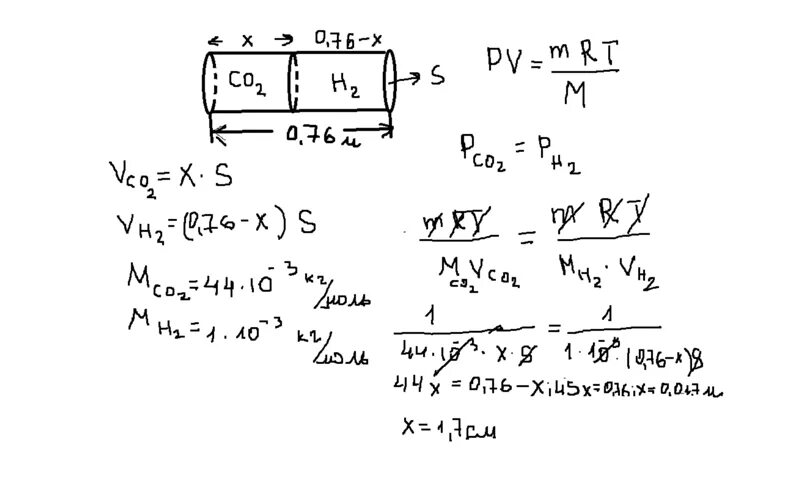 x 0,76-x
CO₂ H₂ S
0,76 м
PV = mRT/M
P_CO₂ = P_H₂
V_CO₂ = x · S
V_H₂ = (0,76-x) S
M_CO₂ = 44·10⁻³ кг/моль
M_H₂ = 1·10⁻³ кг/моль
mRT/(M_CO₂ V_CO₂) = mRT/(M_H₂ · V_H₂)
1/(44·10⁻³ · x · S) = 1/(1·10⁻³ · (0,76-x)S)
44x = 0,76-x; 45x=0,76; x=0,017 м
x = 1,7 см